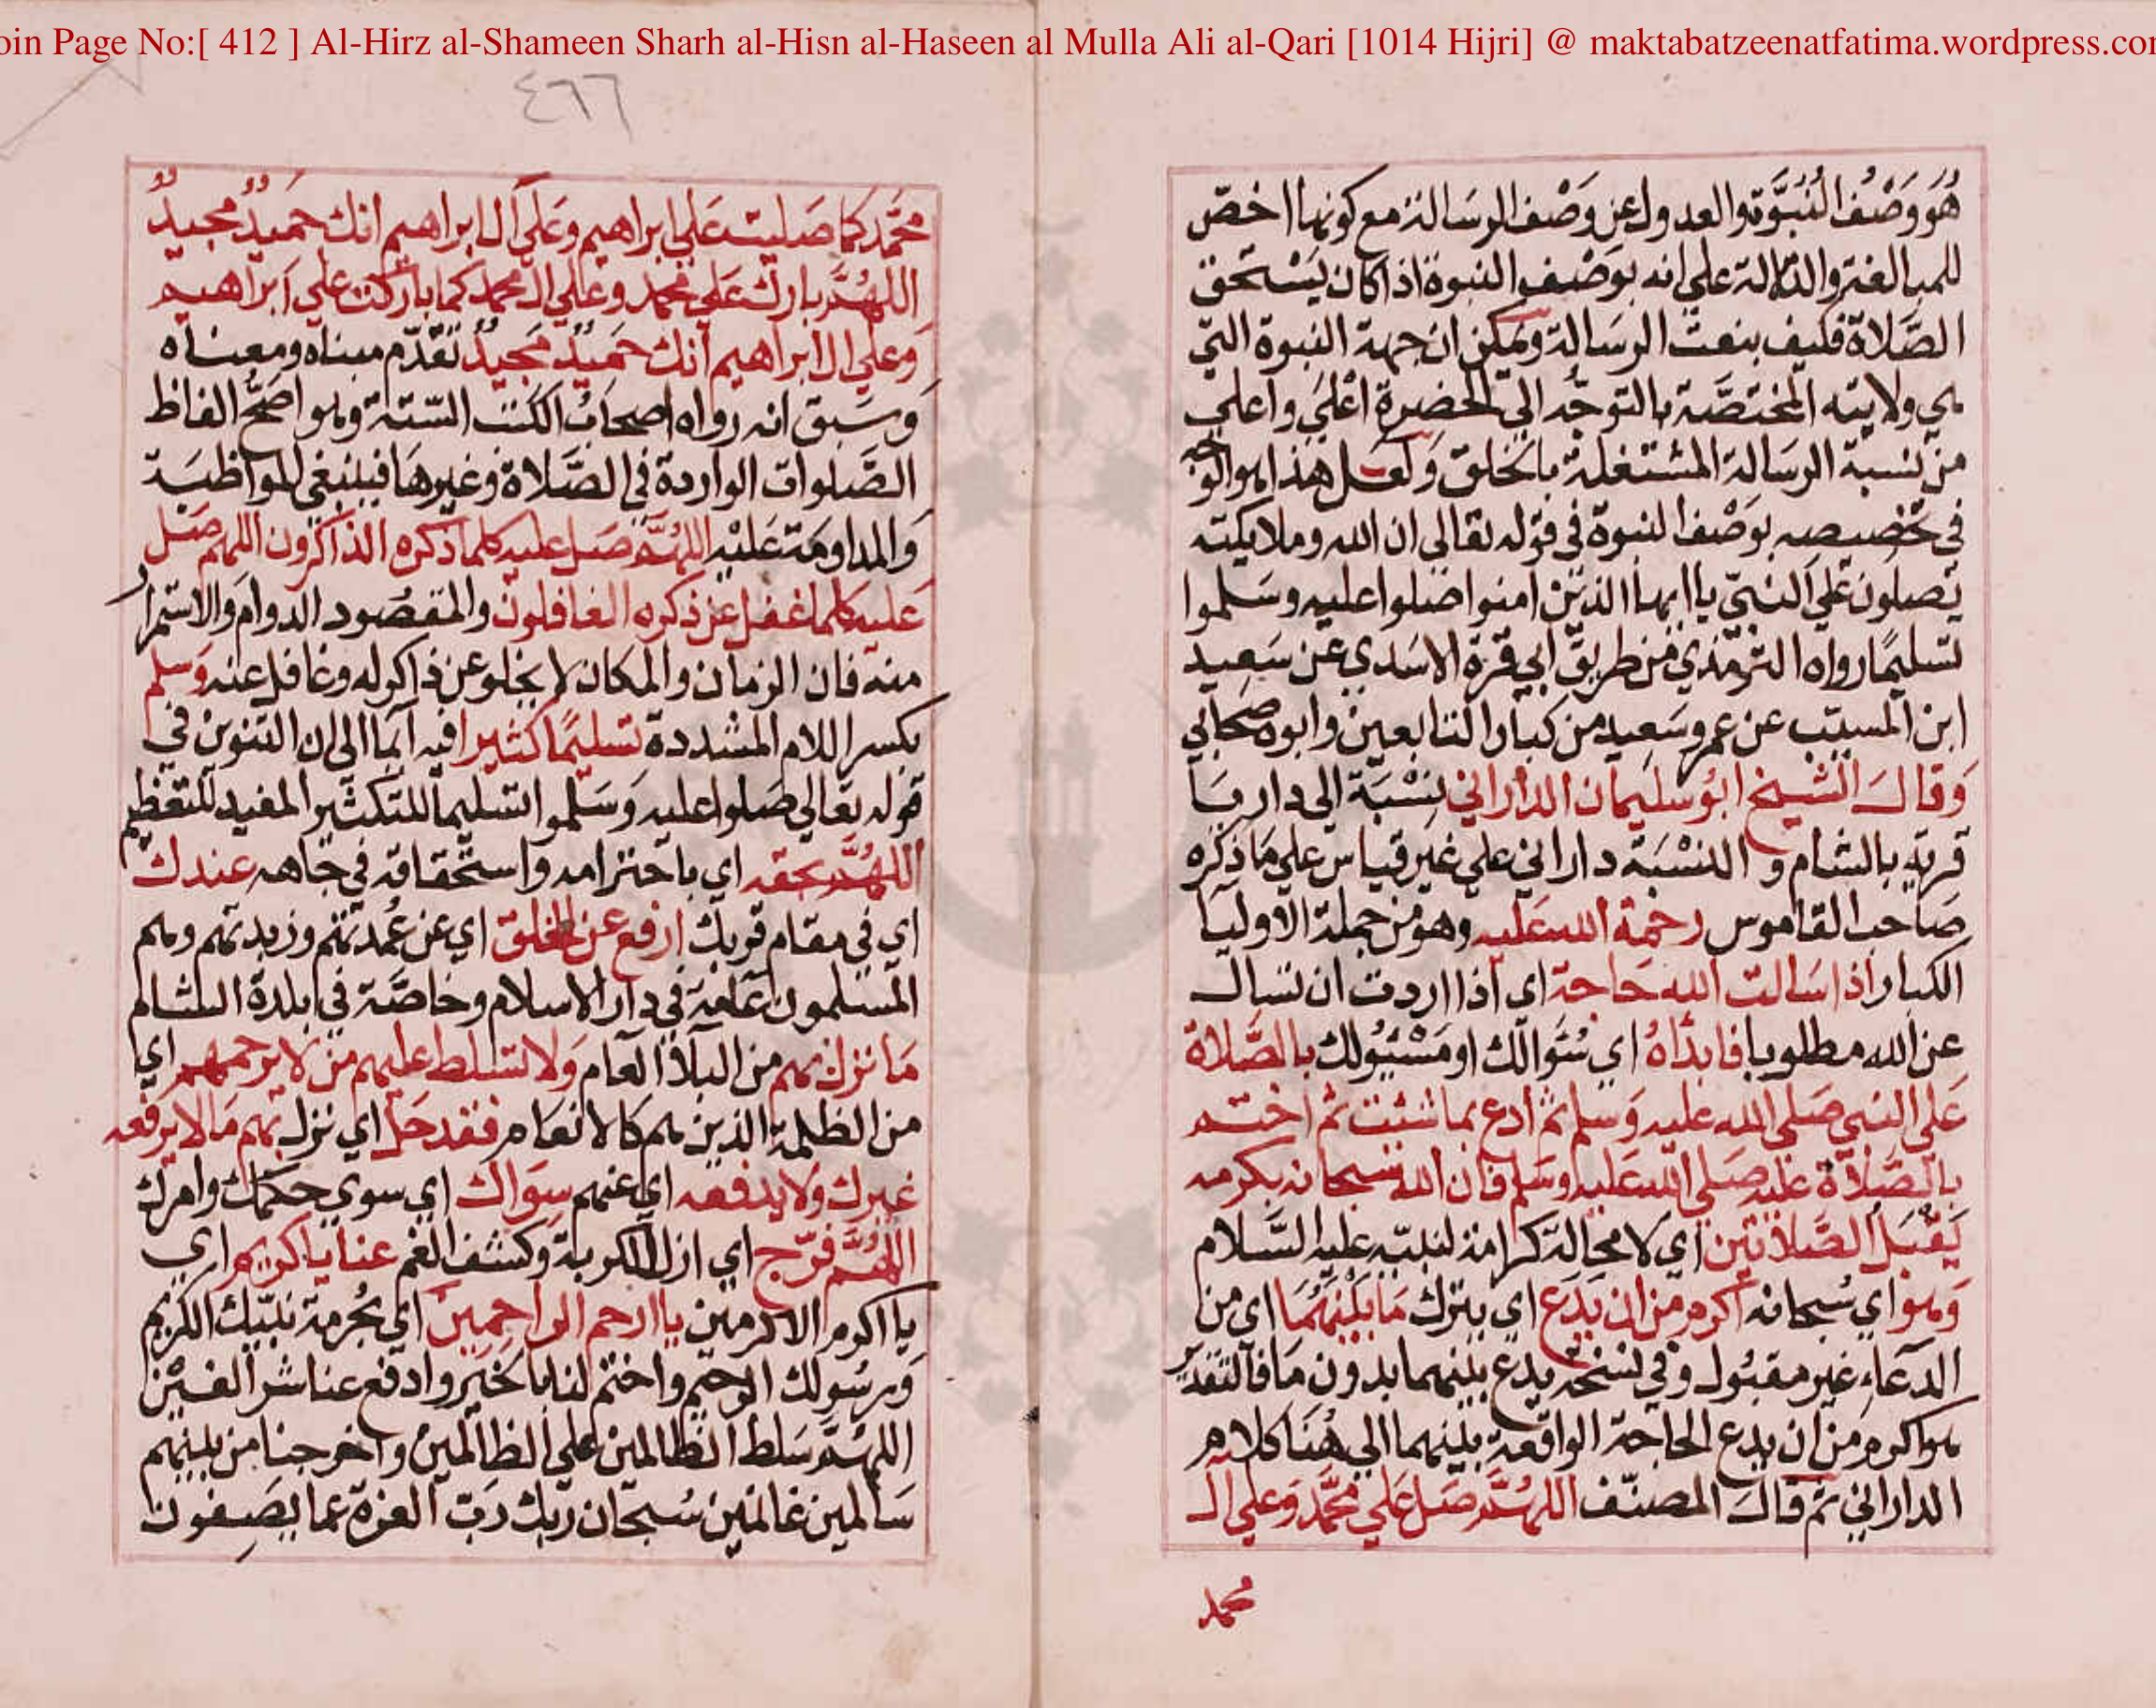 oin Page No:[ 412 ] Al-Hirz al-Shameen Sharh al-Hisn al-Haseen al Mulla Ali al-Qari [1014 Hijri] @ maktabatzeenatfatima.wordpress.co
هُوَ وَصْفُ النُبُوَّة والعدول عن وَصْف الرسَالة مع كونها اخصّ
للمبالغة والدلالة علي انه بوَصْف النبوة اذا كان يَسْتحق
الصَّلاة فكيف بنعت الرسَالة ويمكن ان جهة النبوة التي
هي ولايته المختصَّة بالتوجّه الي الحضرة اعْلَي واَعلي
من نسبة الرسالة المشتغلة بالخلق وَلعَل هذا هو الوجه
في تخصيصه بوَصْف النبوة في قوله تعالي ان الله وملايكته
يُصلوُن عَلي النبيّ يا ايها الذيْن امنوا صَلوا عليه وسَلموا
تسليمًا رواه الترمذي من طريق ابي قرة الاسَدي عن سَعِيد
ابن المسيّب عن عمر وسَعِيد من كبار التابعين وابوه صحابي
وَقالَ الشيخ ابوُ سليمان الداراني نِسْبَة الي داريا
قرية بالشام و النسْبَة داراني علي غير قياس علي مَا ذكره
صَاحب القاموس رحْمة الله عَليه وهو من جملة الاوليا
الكبار اذا سَالت الله حَاجة اي اذا اردت ان تسال
عن الله مطلوبا فابدَاهُ اي سُؤالك او مَسْئيُولك بالصَّلاة
عَلي النبي صَلي الله عليه وَسلم ثم ادع بما شئت ثم اختم
بالصَّلاة عَليه صَلي الله عَليه وسَلم فان الله سبحانه بكرمه
يَقْبَل الصَّلاتين اي لا محالة كرامة لنبيّه عليه السَّلام
وَهو اي سُبحانه اكرم من ان يَدَع اي يترك مَا بَيْنَهُمَا اي من
الدعاء غير مقبُول وفي نسخة يدع بينهما بدون مَا فالتقدير
هو اكرم من ان يدع الحاجة الواقعة بينهما الي هُنَا كلام
الداراني ثم قالَ المصنّف اللهُمَّ صَل عَلي محمَّد وَعلي ال
محمد
٤٦٦
محَمَّد كما صَليت عَلي ابراهيم وَعَلي ال ابراهيم انك حميدٌ مجيدٌ
اللهُمَّ بارك عَلي محمد وعَلي ال محمد كما باركت علي ابراهيم
وَعلي ال ابراهيم انك حَميدٌ مَجيدٌ تقدّم مبناه ومعناه
وَسَبق انه رواه اصحابُ الكتب السّتة وهو اصَحُّ الفاظ
الصَّلوات الواردة في الصَّلاة وغيرهَا فينبغي المواظبَة
وَالمداومَة عَليْه اللهُمَّ صَل عليه كلما ذكره الذاكرون اللهم صَل
عليه كلما غفل عن ذكره الغافلون والمقصُود الدوام والاستمرار
منه فان الزمان والمكان لا يخلو عن ذاكر له وغافل عنه وَسلم
بكسر اللام المشددة تسليمًا كثيرا فيه ايما الي ان التنوين في
قوله تعالي صَلوا عليه وَسَلموا تسليما للتكثير المفيد للتعظيم
اللهُمَّ بحقه اي باحترامه واستحقاقه في جاهه عندك
اي في مقام قربك ارفع عن الخلق اي عن عُمدتهم وزبدتهم وهم
المسلمون عَامة في دار الاسلام وخاصَّة في بلدة الشام
مَا نزل بهم من البلاء العام وَلا تسَلط عليهم من لا يرحمهم اي
من الظلمة الذين هم كالانعام فقد حَل اي نزل بهم مَا لا يرفعه
غيرك ولا يدفعه اي عنهم سِوَاك اي سوي حكمك وامرك
اللهُمَّ فرّج اي ازل الكربة وكشف الغم عنا يا كريم اي
يا اكرم الاكرمين يا ارحم الراحمين اي بحُرمة نبيّك الكريم
وَرسُولك الرحيم واختم لنا بالخير وادفع عنا شر الفتن
اللهُمَّ سَلط الظالمين علي الظالمين واخرجنا من بينهم
سَالمين غانمين سُبحان ربّك رَبّ العزة عما يَصِفون